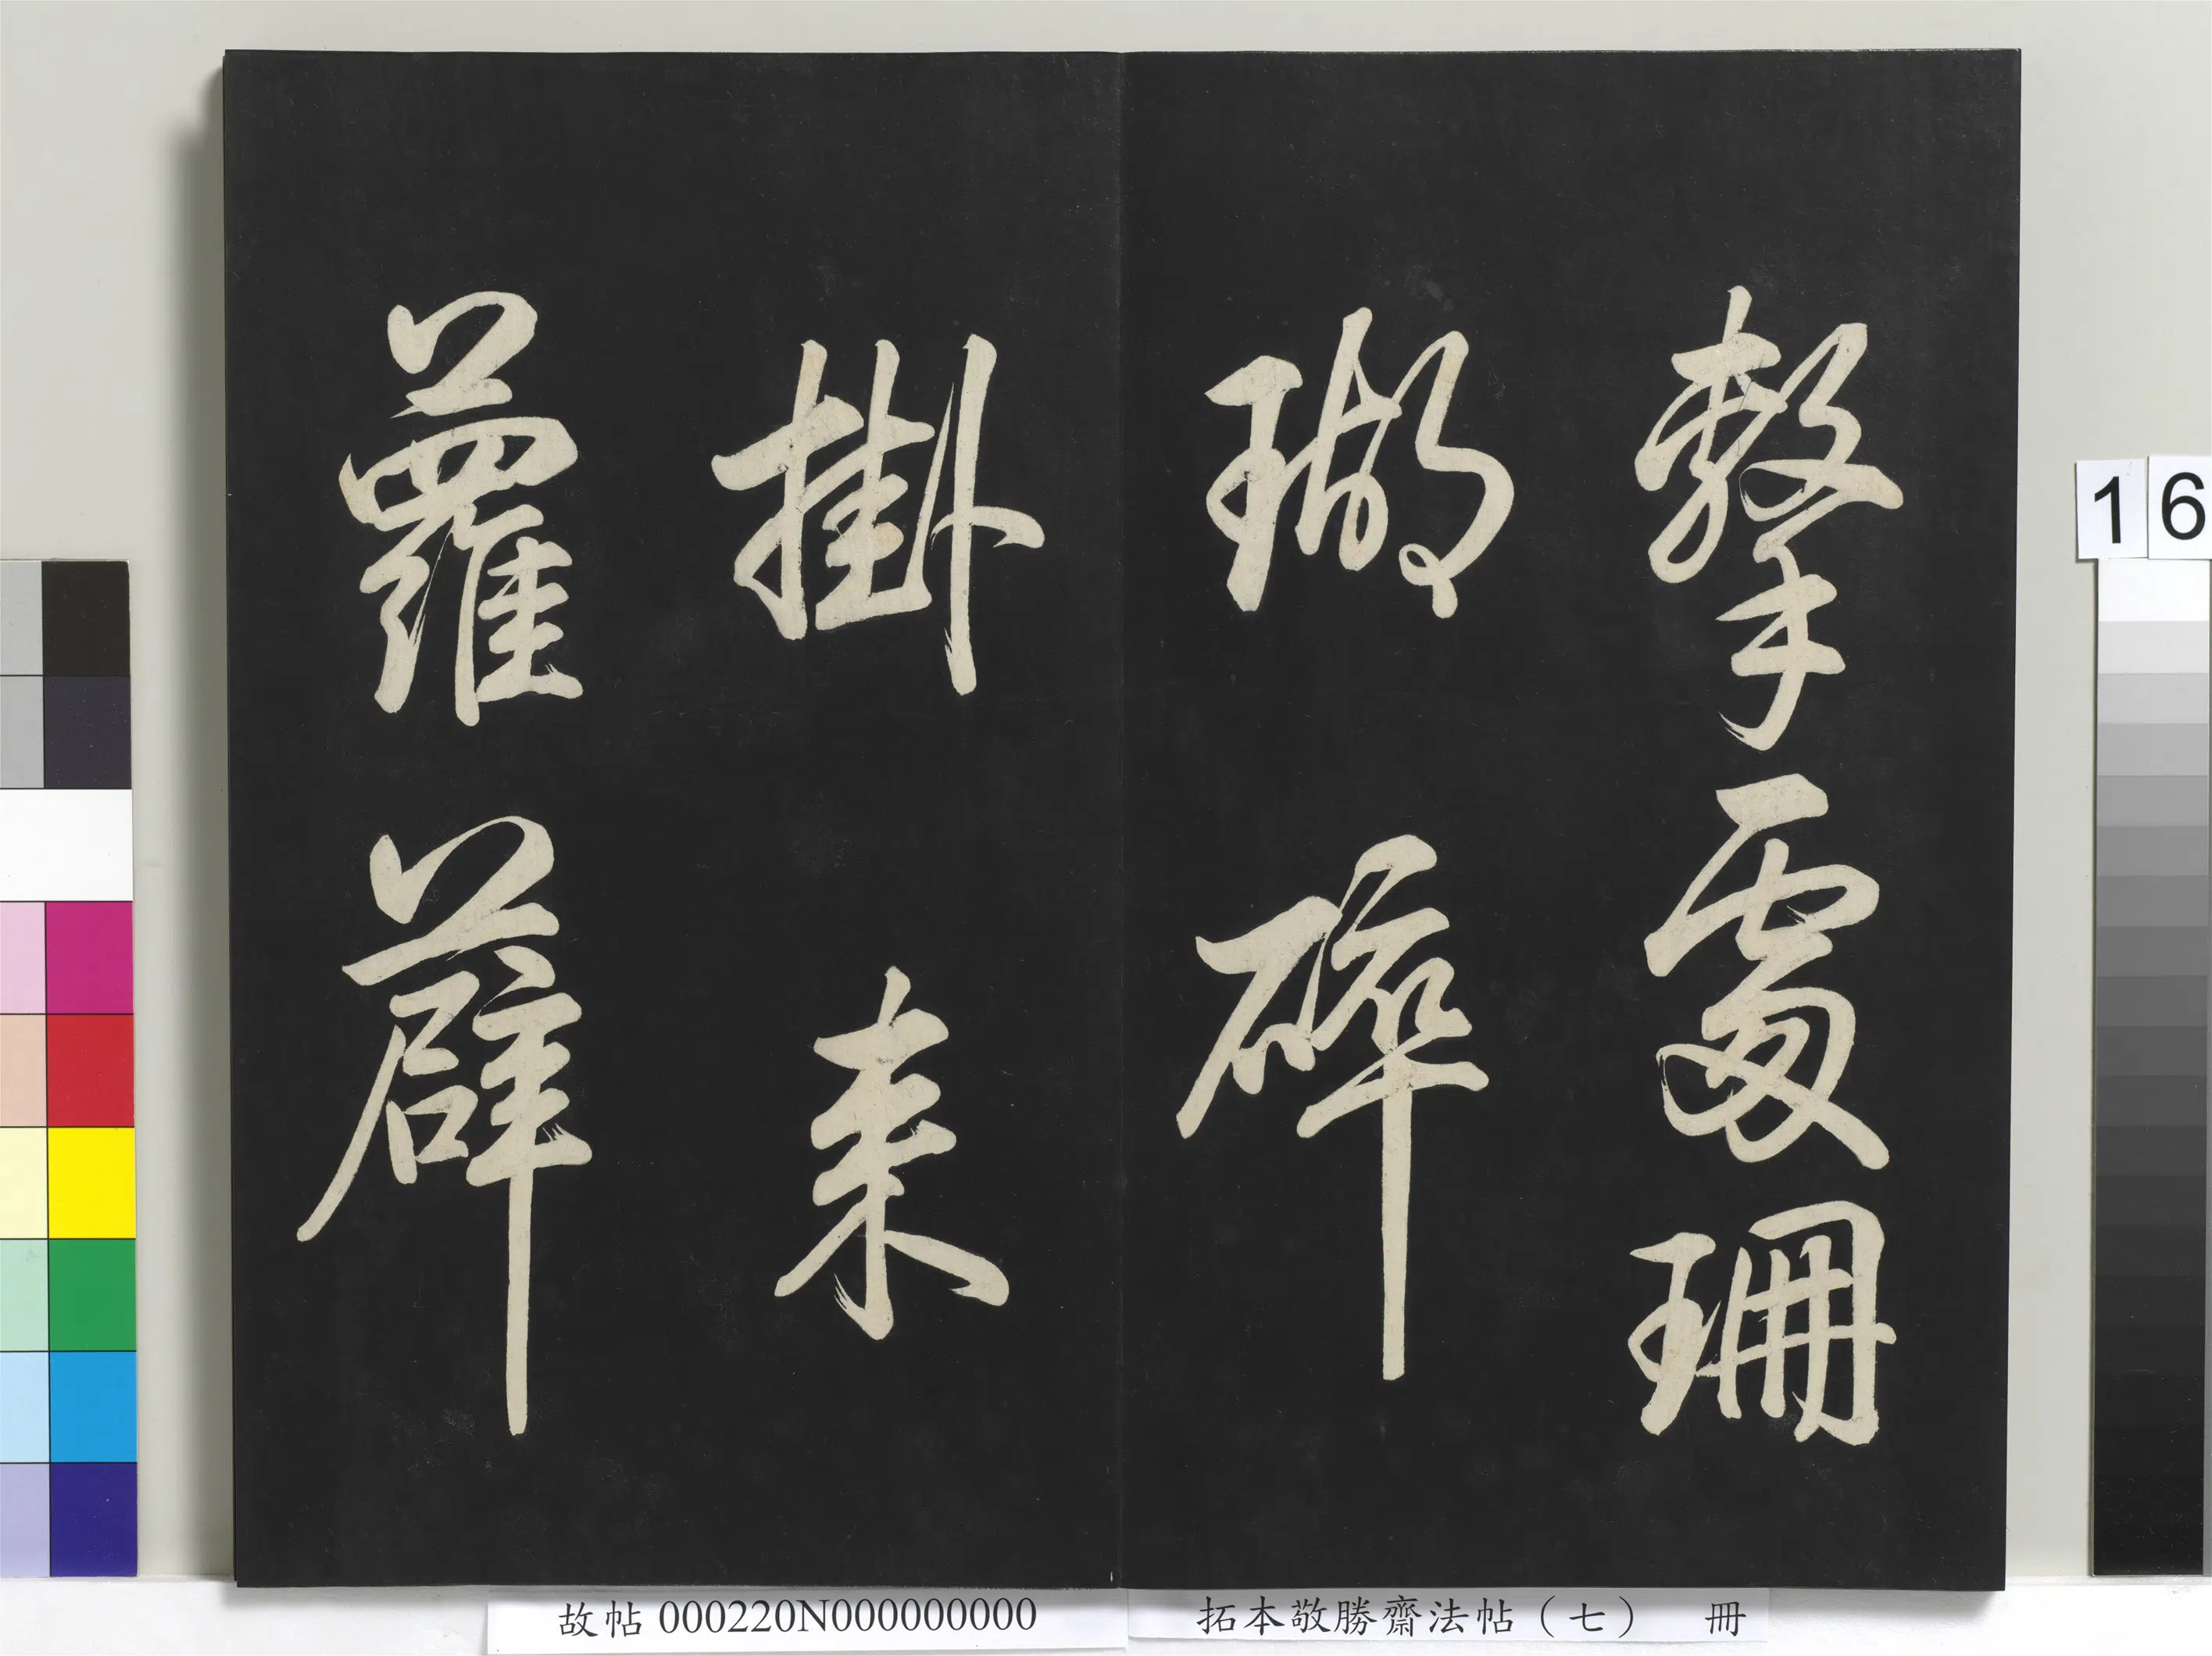 擊處珊
瑚碎
掛来
蘿薜
16
故帖 000220N000000000
拓本敬勝齋法帖（七） 冊